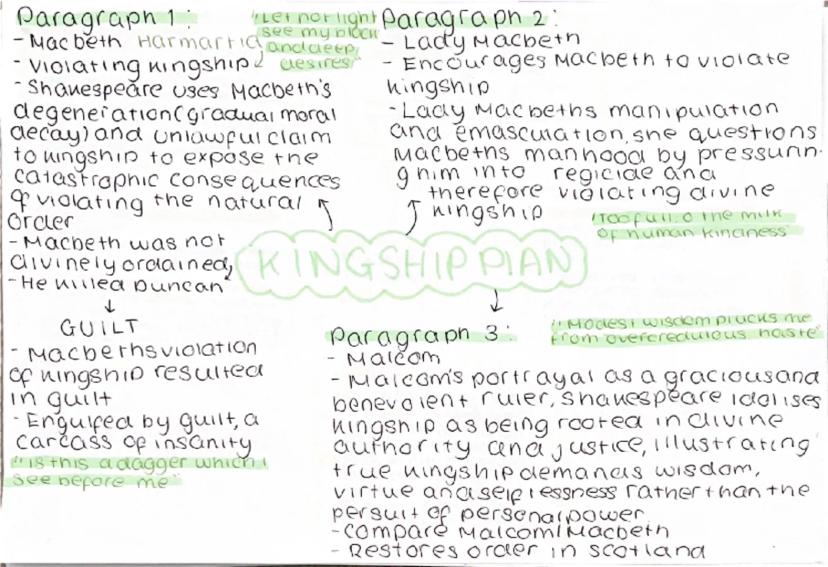 Paragraph 1:
- Macbeth Harmartia
- Violating kingship
- Shakespeare uses Macbeth's
degeneration (gradual moral
decay) and unlawful claim
to kingship to expose the
catastrophic consequences
of violating the natural
order
- Macbeth was not
divinely ordained,
- He killed Duncan
"Let not light
see my black
and deep
desires"
↓
GUILT
- Macbeths violation
of kingship resulted
in guilt
- Engulfed by guilt, a
carcass of insanity
"is this a dagger which I
see before me"
Paragraph 2:
- Lady Macbeth
- Encourages Macbeth to violate
kingship
- Lady Macbeths manipulation
and emasculation, she questions
Macbeths manhood by pressurin-
g him into regicide and
therefore violating divine
kingship
"Too full o the milk
of human kindness"
KINGSHIP PLAN
Paragraph 3:
- Malcom
- Malcom's portrayal as a gracious and
benevolent ruler, Shakespeare idolises
kingship as being rooted in divine
authority and justice, illustrating
true kingship demands wisdom,
virtue and selflessness rather than the
persuit of personal power
- compare Malcom/Macbeth
- Restores order in scotland
"Modest wisdom plucks me
from overcredulous haste"